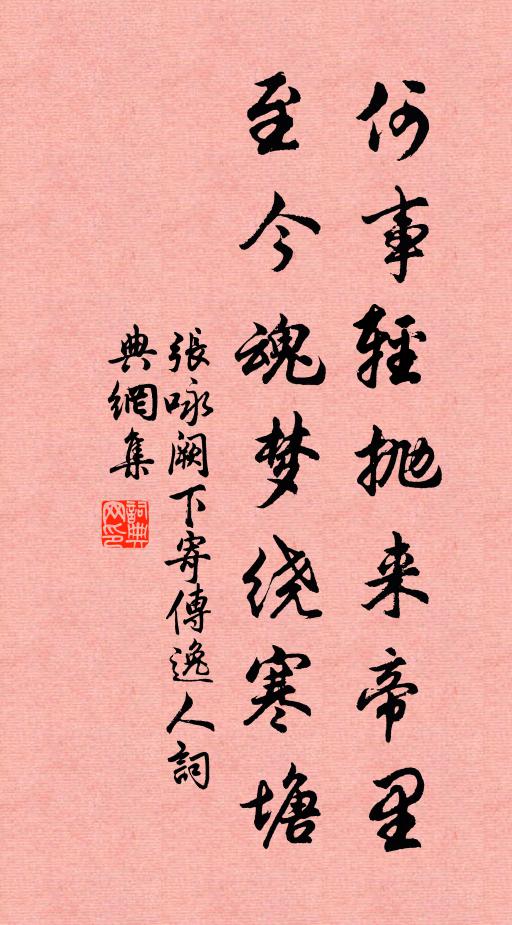 何事輕抛来帝里
至今魂梦绕寒塘
張咏阙下寄傅逸人詞
典網集
詞典網印